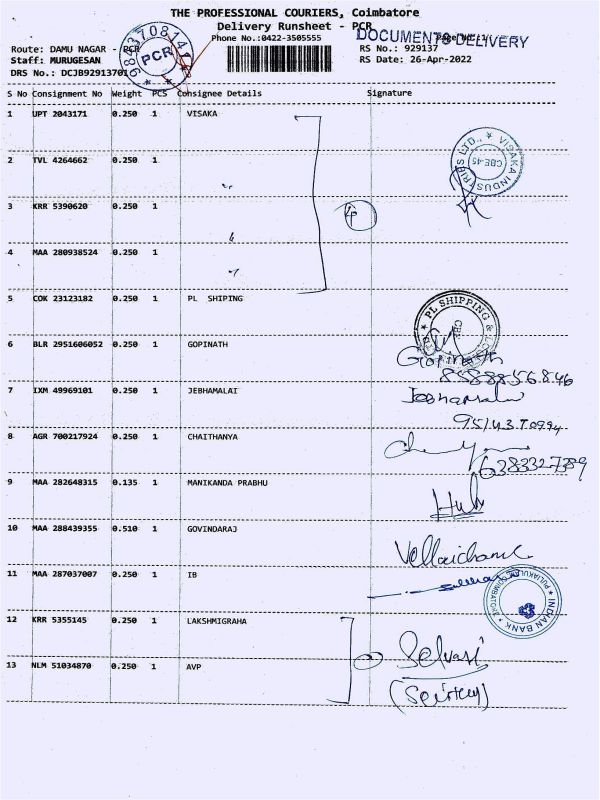 THE PROFESSIONAL COURIERS, Coimbatore
Delivery Runsheet - PCR
Phone No.:0422-3505555
DOCUMENTS DELIVERY
Route: DAMU NAGAR - PCR
RS No.: 929137
Staff: MURUGESAN
RS Date: 26-Apr-2022
DRS No.: DCJB92913701
PCR
S No Consignment No Weight PCS Consignee Details Signature
1 UPT 2043171 0.250 1 VISAKA
2 TVL 4264662 0.250 1
VISAKA INDUSTRIES LTD., CBE-45
3 KRR 5390620 0.250 1
4
4 MAA 280938524 0.250 1
5 COK 23123182 0.250 1 PL SHIPING
PL SHIPPING &
6 BLR 2951606052 0.250 1 GOPINATH
Gopinath
7 IXM 49969101 0.250 1 JEBHAMALAI
8 AGR 700217924 0.250 1 CHAITHANYA
9 MAA 282648315 0.135 1 MANIKANDA PRABHU
10 MAA 288439355 0.510 1 GOVINDARAJ
11 MAA 287037007 0.250 1 IB
INDIAN BANK
12 KRR 5355145 0.250 1 LAKSHMIGRAHA
Selvasi
13 NLM 51034870 0.250 1 AVP